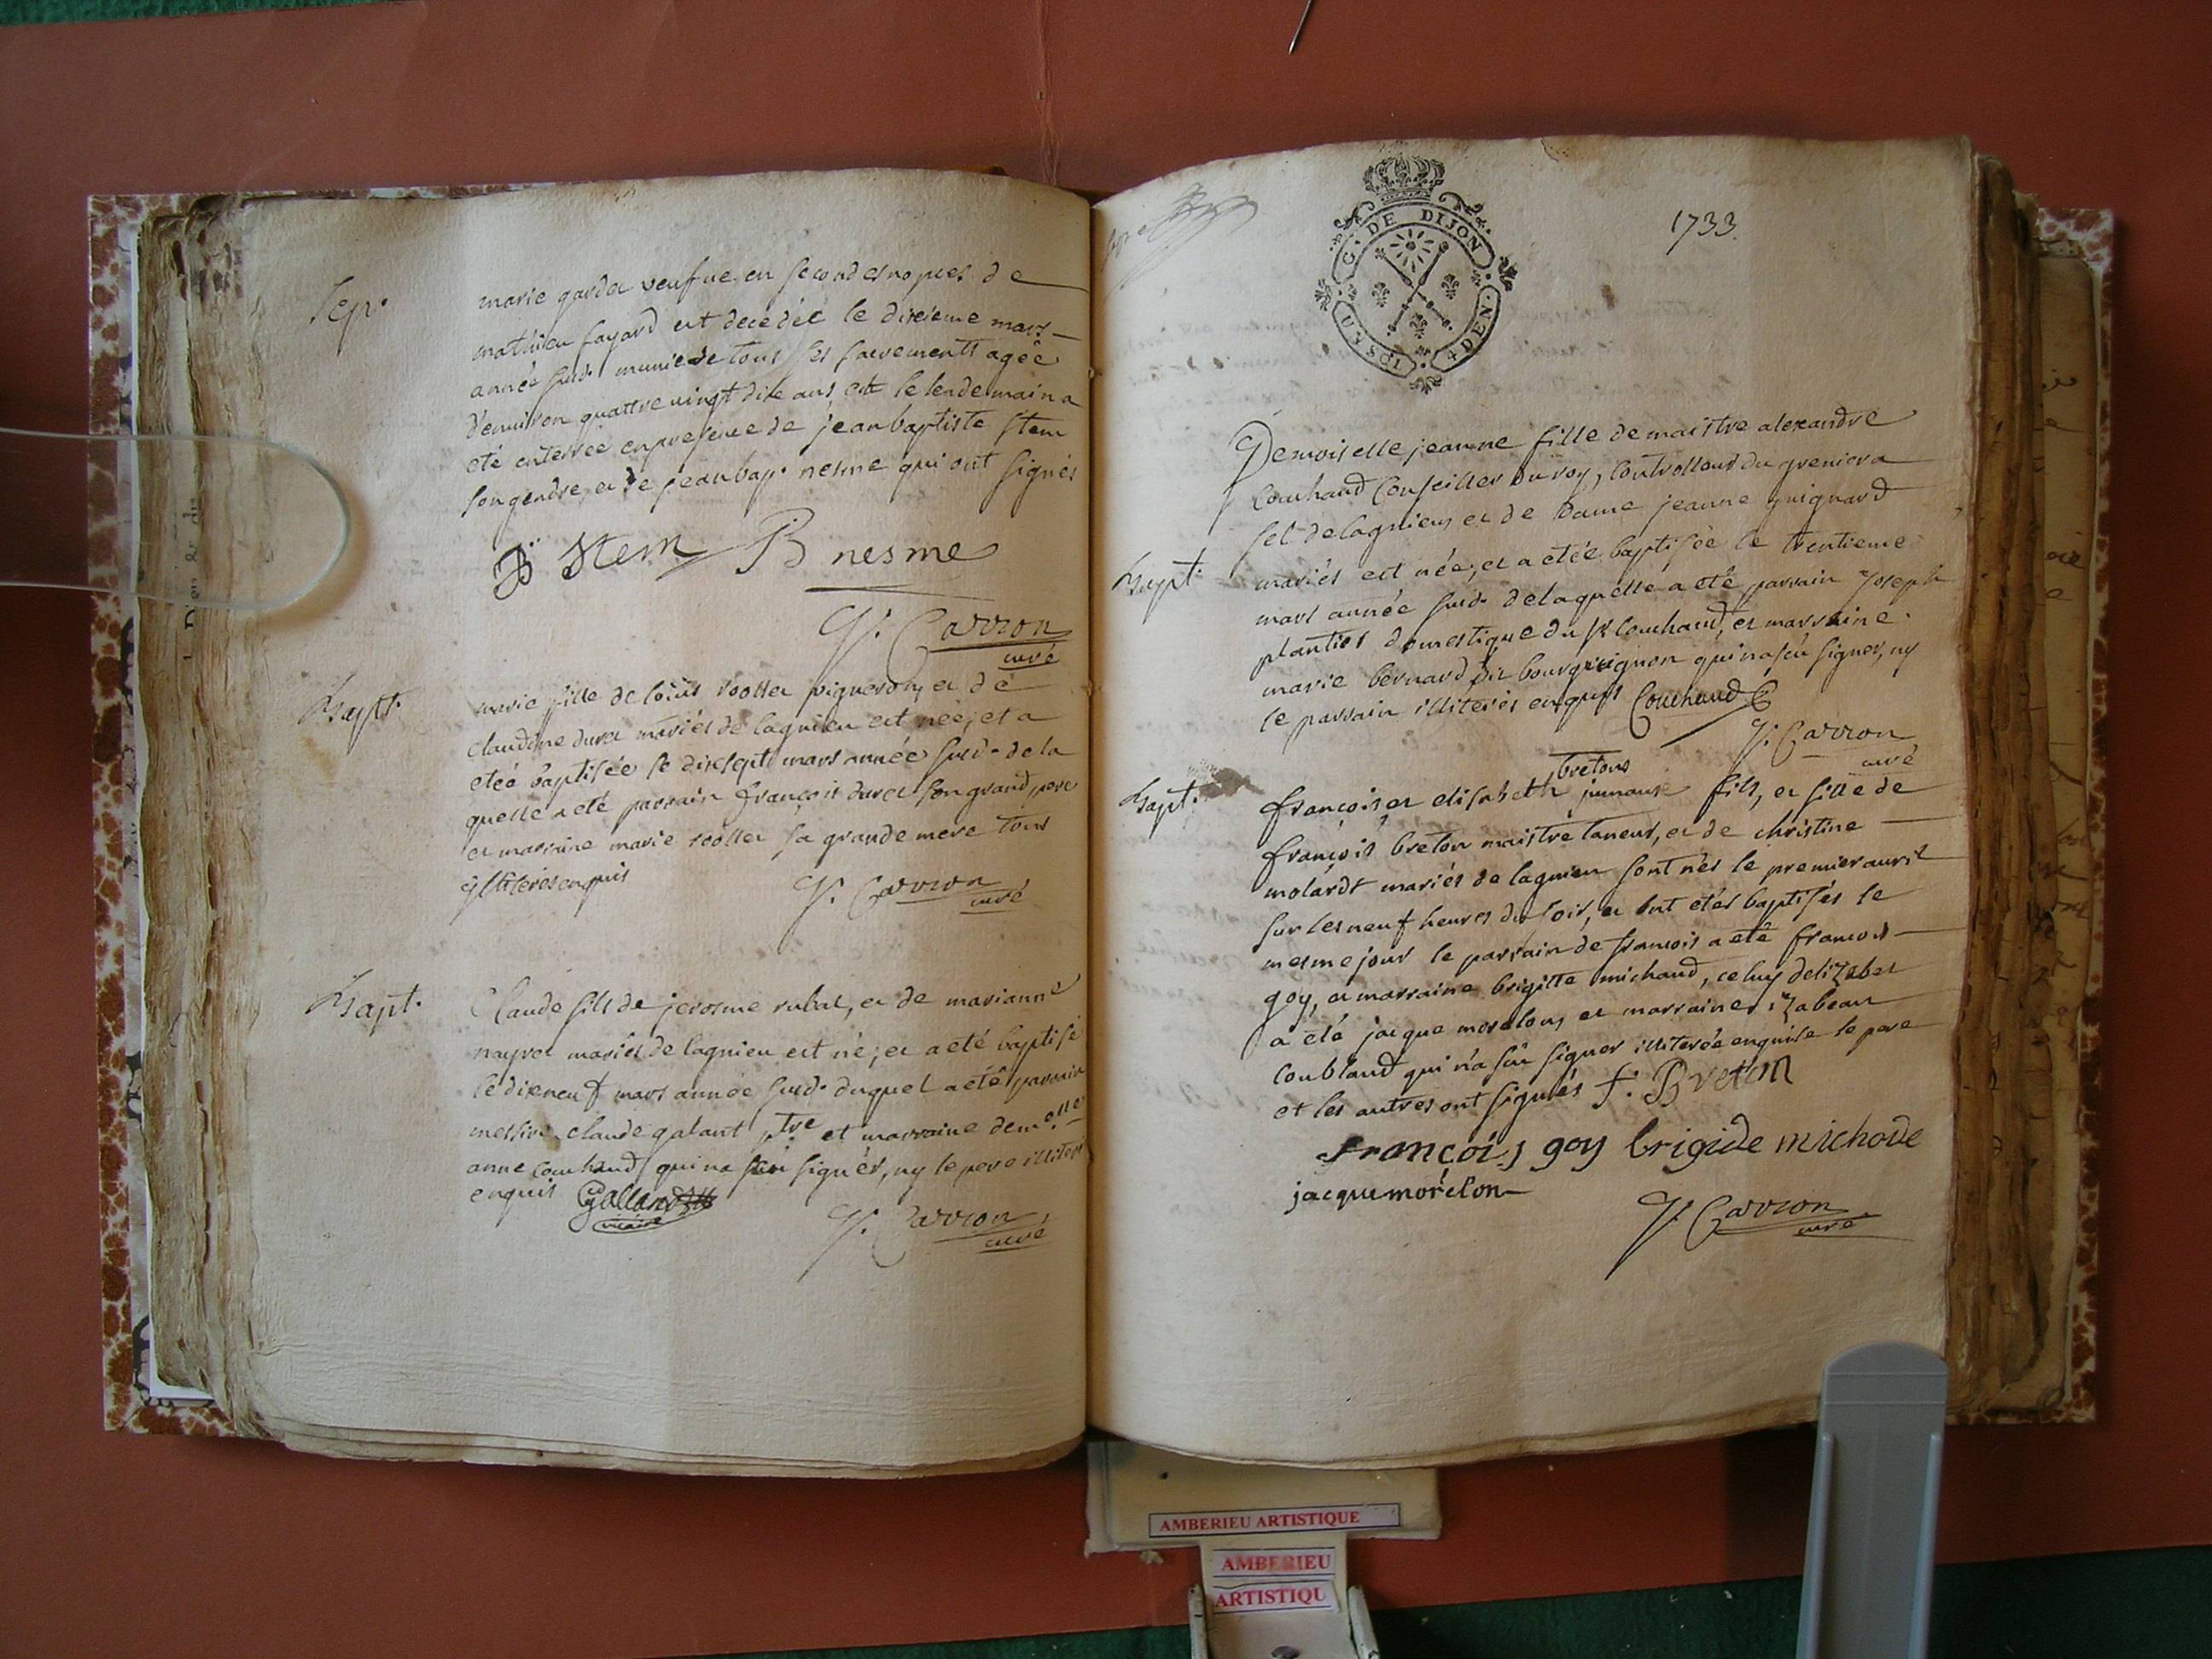 Sep.
marie gardet veufve en secondes nopces de
mathieu fayard est decedée le dixieme mars
année susd. munie de tous ses sacrements agée
d'environ quattre vingt dixe ans, et le lendemain a
eté enterrée en presence de jean baptiste Stem
son gendre, et de jean bap. nesme qui ont signés
B Stem B nesme
J. Carron
curé
Bapt.
marie fille de vigneron, et de
claudine duret mariés de lagnieu est née, et a
eteé baptisée le dixsept mars année susd. de la
quelle a eté parrain françois duret son grand pere
et marraine marie sa grande mere tous
illiterés enquis
J. Carron
curé
Bapt.
Claude fils de jerosme rubat, et de marianne
nayret mariés de lagnieu est né; et a eté baptisé
le dixneuf mars année susd. duquel a eté parrain
messire claude galant ptre et marraine demelle
anne couchand qui na sceu signer, ny le pere illiteré
enquis Galland
vicaire
J. Carron
curé
G. DE DIJON
4 DEN.
1733.
Demoiselle jeanne fille de maistre alexandre
Couchand Conseiller du roy, Controlleur du grenier a
sel de lagnieu, et de Dame jeanne guignard
Bapt.
mariés est née, et a etée baptisée le trentieme
mars année susd. de laquelle a eté parrain joseph
plantier domestique du sr Couchand, et marraine
marie bernard dit bourguignon qui na sceu signer, ny
le parrain illiterés enquis Couchand
J. Carron
curé
bretons
Bapt.
françois, et elisabeth jumaux fils, et fille de
françois breton maistre taneur, et de christine
molard mariés de lagnieu sont nés le premier avril
sur les neuf heures du soir, et ont etés baptisés le
mesme jour le parrain de françois a eté francois
goy, et marraine brigitte michaud, celuy delizabet
a eté jacque morelon, et marraine izabeau
coubland qui n'a sçu signer illiterée enquise le pere
et les autres ont signés f. Breton
francois goy brigide michode
jacque morelon
J. Carron
curé
AMBERIEU ARTISTIQUE
AMBERIEU
ARTISTIQU